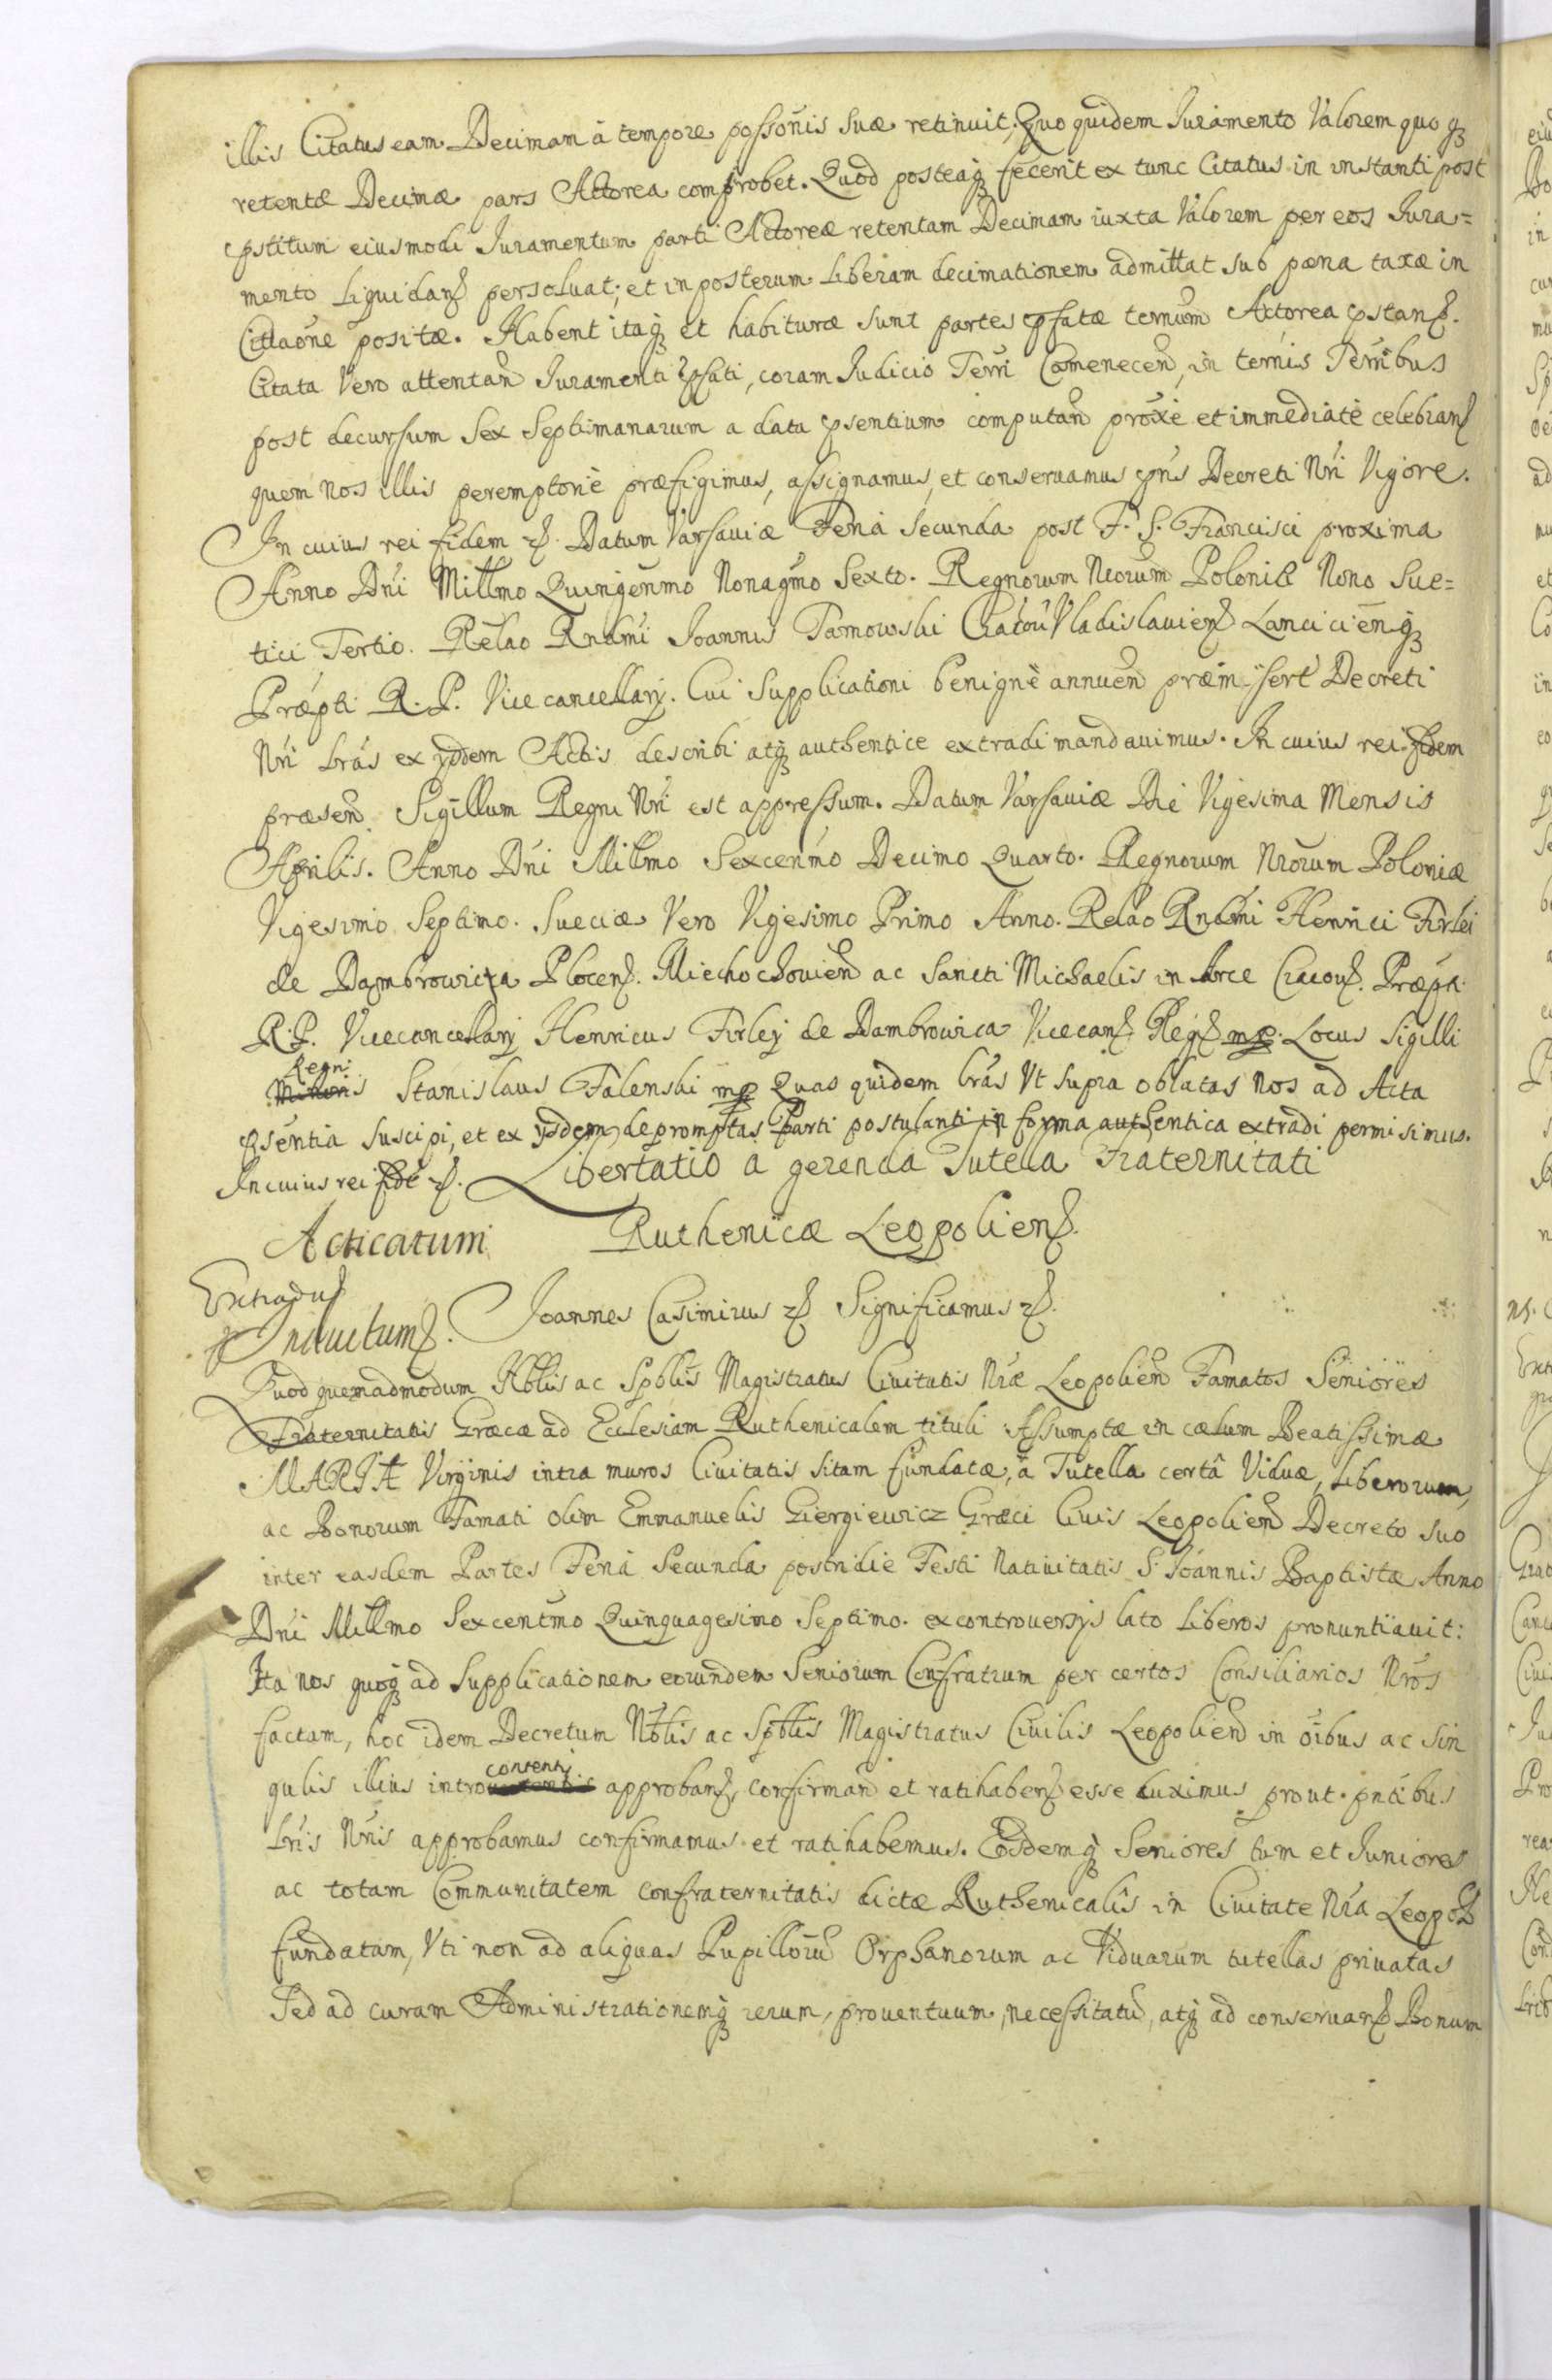 illis Citatus eam Decimam à tempore possonis suæ retinuit, Quo quidem Iuramento Valorem quoqȝ
retentæ Decimæ pars Actorea comprobet. Quod posteaqȝ fecerit ex tunc Citatus in instanti post
pstitum eiusmodi Iuramentum parti Actoreæ retentam Decimam iuxta Valorem per eos Iura=
mento liquidanȝ persoluat; et in posterum liberam decimationem admittat sub pœna taxæ in
Cittaõne positæ. Habent itaqȝ et habituræ sunt partes pfatæ termum Actorea pstanȝ.
Citata Vero attentañ Iuramenti pfati, coram Iudicio Terri Camenecen, in ternis Terribus
post decursum sex Septimanarum a data psentium computañ proxè et immediatè celebranȝ
quem Nos illis peremptoriè præfigimus, assignamus, et conseruamus pns Decreti Nri Vigore.
In cuius rei fidem ȝ. Datum Varsauiæ Feria Secunda post F. S. Francisci proxima
Anno Dni Millmo Quingenmo Nonagmo Sexto. Regnorum Nrorum Poloniæ Nono Sue=
tici Tertio. Relao Rndmi Ioannis Tarnowski Cracou Vladislauienȝ Lancicienqȝ
Præpti R. P. Vicecancellarij. Cui Supplicationi benignè annuen præinserti Decreti
Nri lras ex ijsdem Actis describi atqȝ authentice extradi mandauimus. In cuius rei fidem
præsen Sigillum Regni Nri est appressum. Datum Varsauiæ Die Vigesima Mensis
Aprilis. Anno Dni Millmo Sexcenmo Decimo Quarto. Regnorum Nrorum Poloniæ
Vigesimo Septimo. Sueciæ Vero Vigesimo Primo Anno. Relao Rndmi Henrici Firlei
de Dambrowicza Plocenȝ. Miechochouien ac Sancti Michaelis in Arce Cracouȝ. Præpti
R. P. Vicecancellarij Henricus Firley de Dambrowica Vicecanȝ Regȝ mp. Locus Sigilli
Regni
Minoris Stanislaus Falenski mp Quas quidem lras Vt supra oblatas Nos ad Acta
psentia suscipi, et ex ijsdem depromptas Parti postulanti in forma authentica extradi permisimus.
In cuius rei fidē ȝ. Libertatio a gerenda Tutella Fraternitati
Acticatum Ruthenicæ Leopolienȝ.
Extraduȝ
Inductumȝ. Joannes Casimirus ȝ Significamus ȝ.
Quod quemadmodum Nblis ac Spblis Magistratus Ciuitatis Nræ Leopolien Famatos Seniores
Fraternitatis Græcæ ad Ecclesiam Ruthenicalem tituli Assumptæ in cælum Beatissimæ
MARIÆ Virginis intra muros Ciuitatis sitam fundatæ, à Tutella certâ Viduæ, Liberorum,
ac Bonorum Famati olim Emmanuelis Giergiewicz Græci Ciuis Leopolien Decreto suo
inter easdem Partes Feria Secunda postridie Festi Natiuitatis S. Ioannis Baptistæ Anno
Dni Millmo Sexcentmo Quinquagesimo Septimo. ex controuersijs lato liberos pronuntiauit:
Ita nos quoqȝ ad Supplicationem eorundem Seniorum Confratrum per certos Consiliarios Nros
factam, hoc idem Decretum Nblis ac Spblis Magistratus Ciuilis Leopolien in oibus ac sin
contenti
gulis illius intro approbanȝ, confirman et ratihabenȝ esse duximus prout pntibus
lris Nris approbamus confirmamus et ratihabemus. Eosdemqȝ Seniores tum et Iuniores
ac totam Communitatem confraternitatis dictæ Ruthenicalis in Ciuitate Nra Leopol
fundatam, Vti non ad aliquas Pupillorū Orphanorum ac Viduarum tutellas priuatas
Sed ad curam Administrationemqȝ rerum, prouentuum, necessitatū, atqȝ ad conseruanȝ Bonum